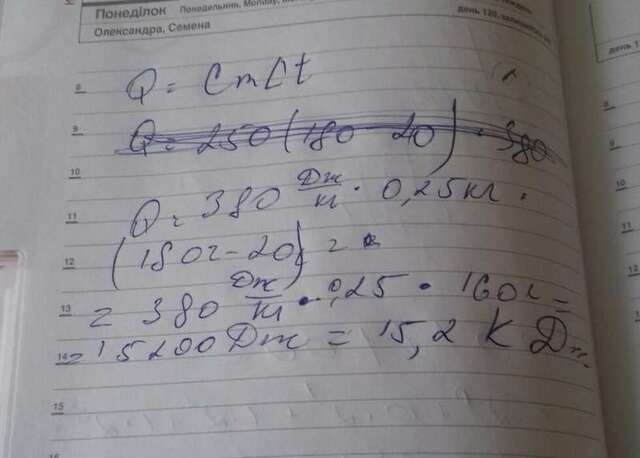 Понеділок Понедельник, Monday,
Олександра, Семена
день 120,
день 1
8 Q = Cm∆t
9 Q = 250 (180 - 20) · 380
10
11 Q = 380 Дж/кг · 0,25кг ·
12 (180г - 20) =
13 = 380 Дж/кг · 0,25 · 160г =
14 = 15200 Дж = 15,2 К Дж
15
8
9
10
11
12
13
14